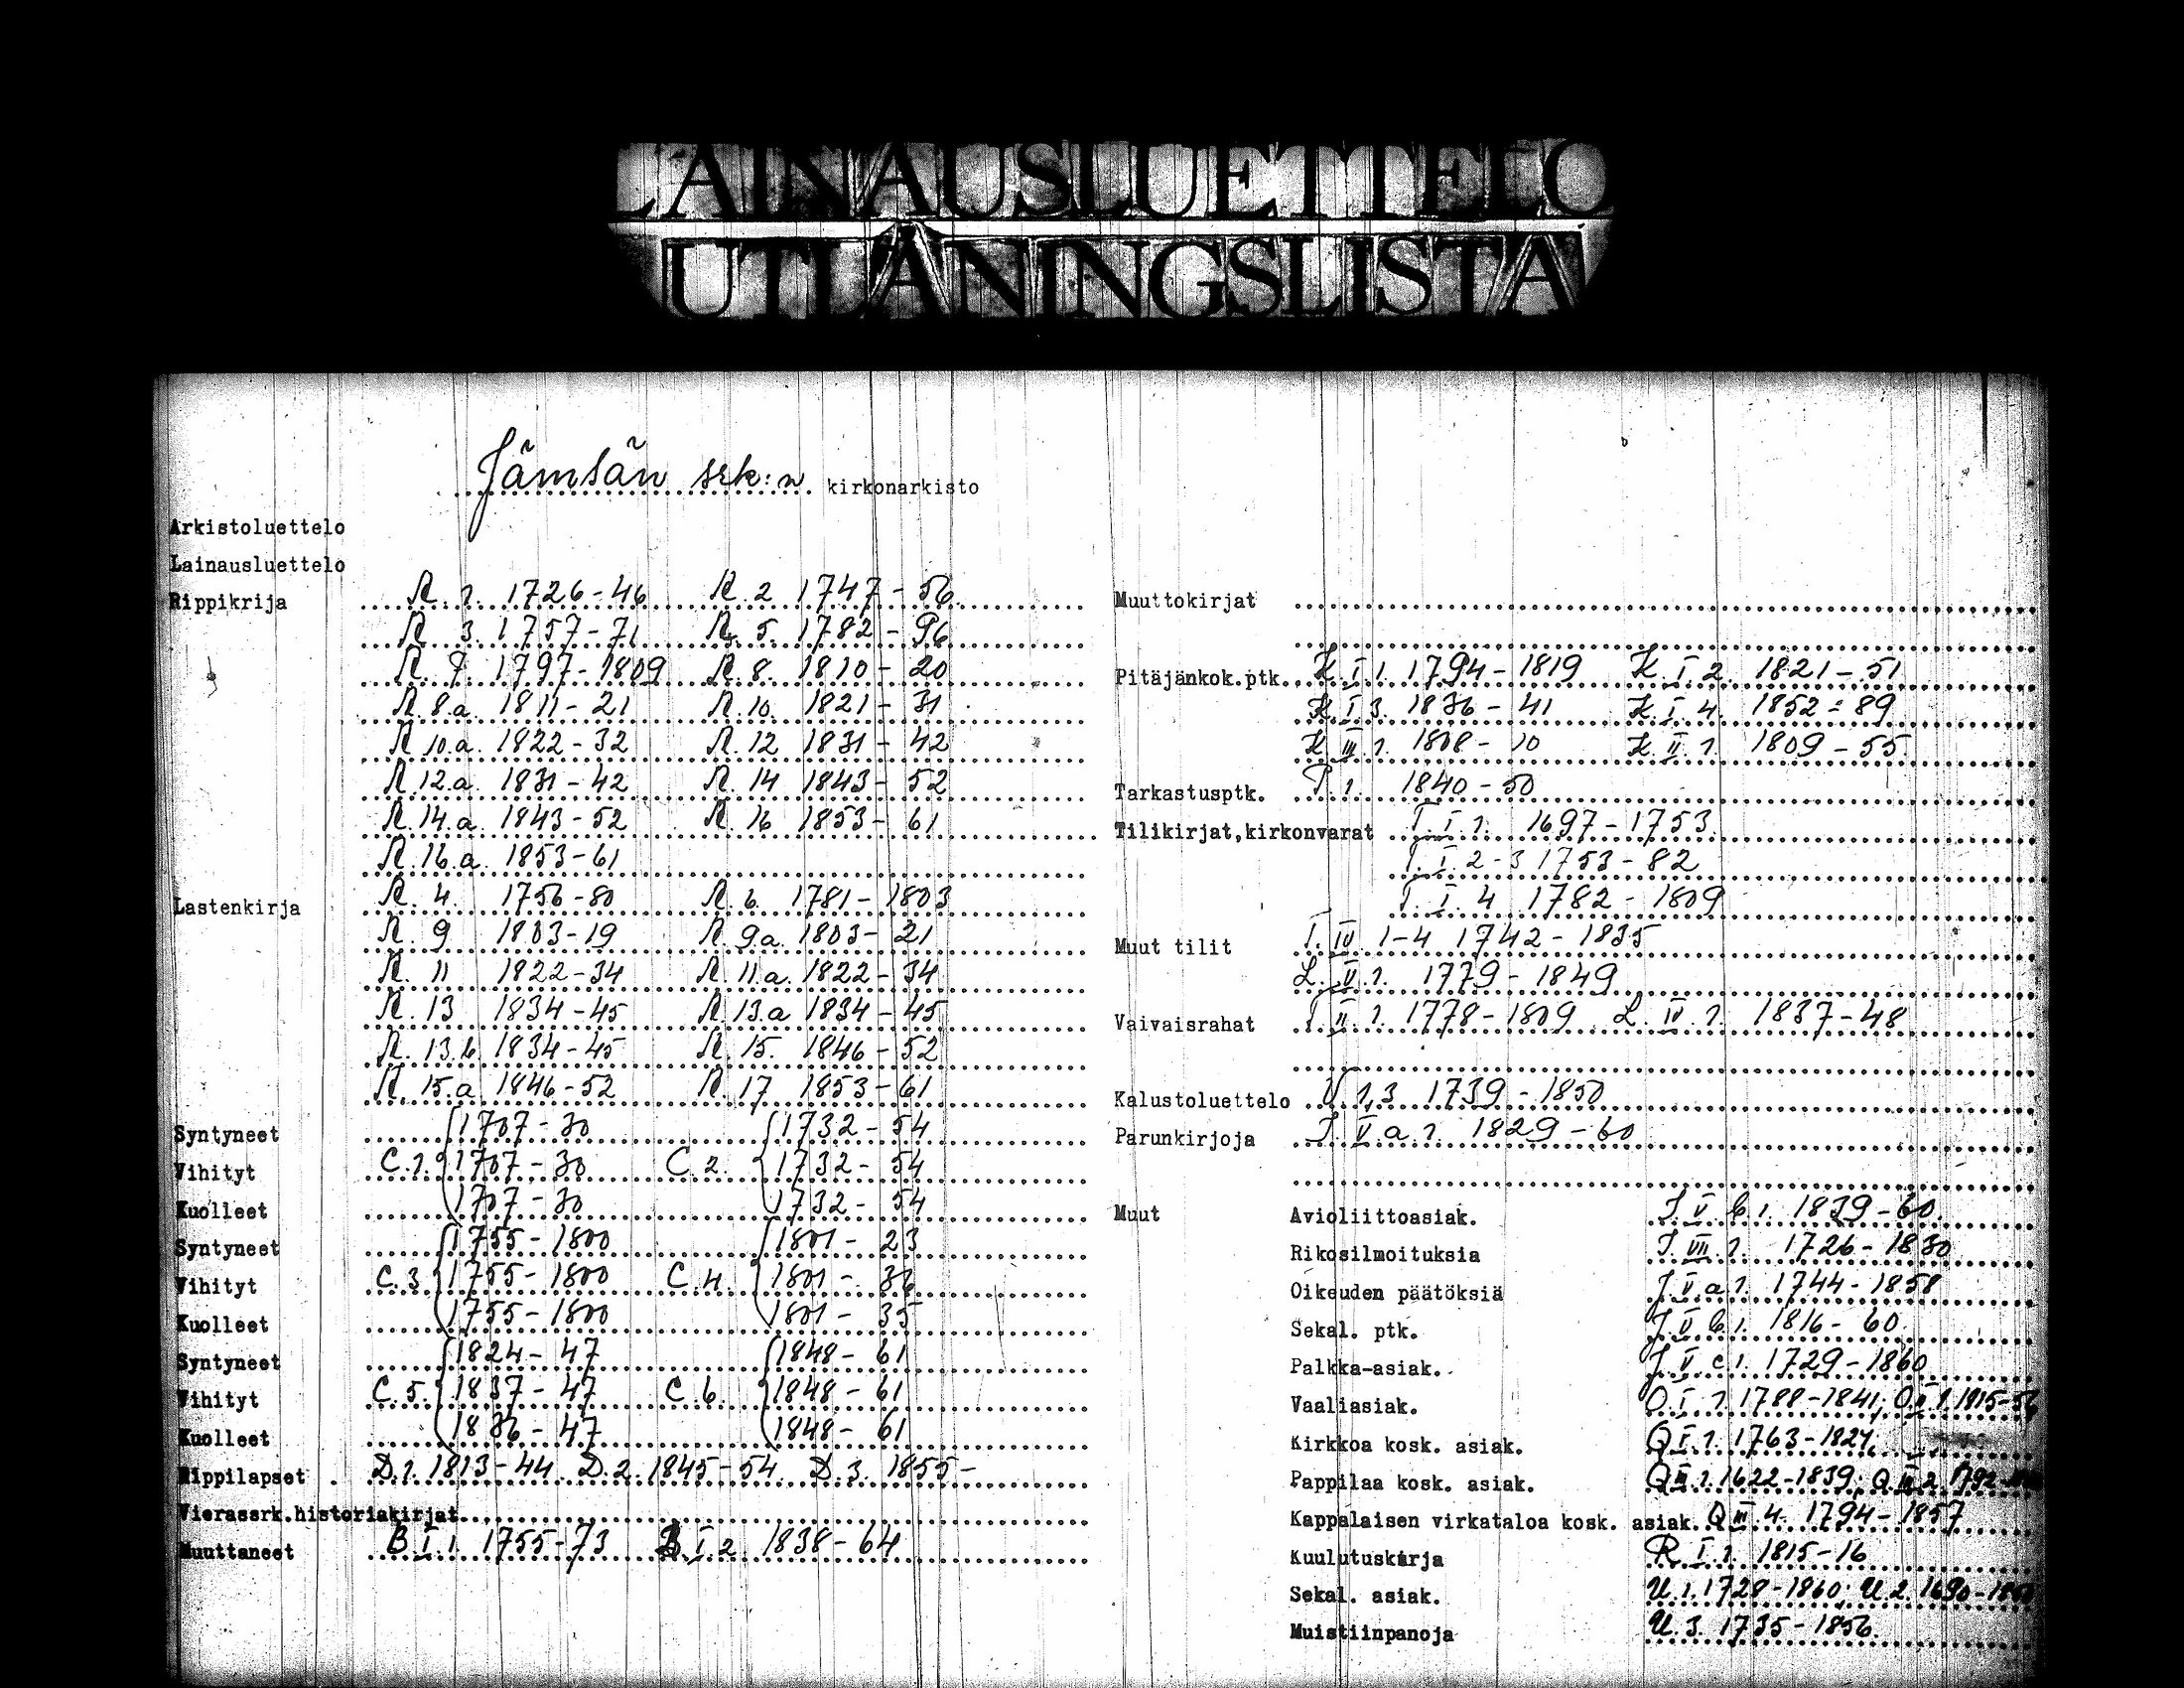 LAINAUSLUETTELO
UTLÅNINGSLISTA
Jämsän srk:n kirkonarkisto
Arkistoluettelo
Lainausluettelo
Rippikrija R. 1. 1726-46 R. 2 1747-56
R. 3. 1757-71 R. 5. 1782-96
R. 7. 1797-1809 R. 8. 1810-20
R. 8.a 1811-21 R. 10. 1821-31
R. 10.a. 1822-32 R. 12 1831-42
R. 12.a. 1831-42 R. 14 1843-52
R. 14.a 1843-52 R. 16 1853-61
R. 16.a. 1853-61
Lastenkirja R. 4. 1756-80 R. 6. 1781-1803
R. 9 1803-19 R. 9a. 1803-21
R. 11 1822-34 R. 11.a. 1822-34
R. 13 1834-45 R. 13.a 1834-45
R. 13.b. 1834-45 R. 15. 1846-52
R. 15.a 1846-52 R. 17 1853-61
Syntyneet 1707-30 1732-54
Vihityt C.1. 1707-30 C.2. 1732-54
Kuolleet 1707-30 1732-54
Syntyneet 1755-1800 1801-23
Vihityt C.3. 1755-1800 C.4. 1801-36
Kuolleet 1755-1800 1801-35
Syntyneet 1824-47 1848-61
Vihityt C.5. 1837-47 C.6. 1848-61
Kuolleet 1836-47 1848-61
Rippilapset D.1. 1813-44 D.2. 1845-54 D.3. 1855-
Vierassrk.historiakirjat
Muuttaneet B I.1. 1755-73 B I.2. 1838-64
Muuttokirjat
Pitäjänkok.ptk. K.I.1. 1794-1819 K.I.2. 1821-51
K.I.3. 1836-41 K.I.4. 1852-89
K III.1. 1808-10 K.II.1. 1809-55.
Tarkastusptk. P.1. 1840-50
Tilikirjat,kirkonvarat T.I.1. 1697-1753.
T.I.2-3 1753-82
T.I.4 1782-1809
Muut tilit T.IV.1-4 1742-1835
L.V.1. 1779-1849
Vaivaisrahat T II.1. 1778-1809 L.IV.1. 1837-48
Kalustoluettelo 1,3 1739-1850
Parunkirjoja J.V.a.1. 1829-60
Muut Avioliittoasiak. J.V.b.1. 1839-60.
Rikosilmoituksia J.VII.1. 1726-1830
Oikeuden päätöksiä J.V.a.1. 1744-1858
Sekal. ptk. J.V.b.1. 1816-60.
Palkka-asiak. J.V.c.1. 1729-1860
Vaaliasiak. O.I.1. 1788-1841;
Kirkkoa kosk. asiak. Q I.1. 1763-1827;
Pappilaa kosk. asiak. 1622-1839;
Kappalaisen virkataloa kosk. asiak. Q III.4. 1794-1857
Kuulutuskirja R.I.1. 1815-16
Sekal. asiak. U.1. 1728-1860; U.2. 1690-
Muistiinpanoja U.3. 1735-1856.